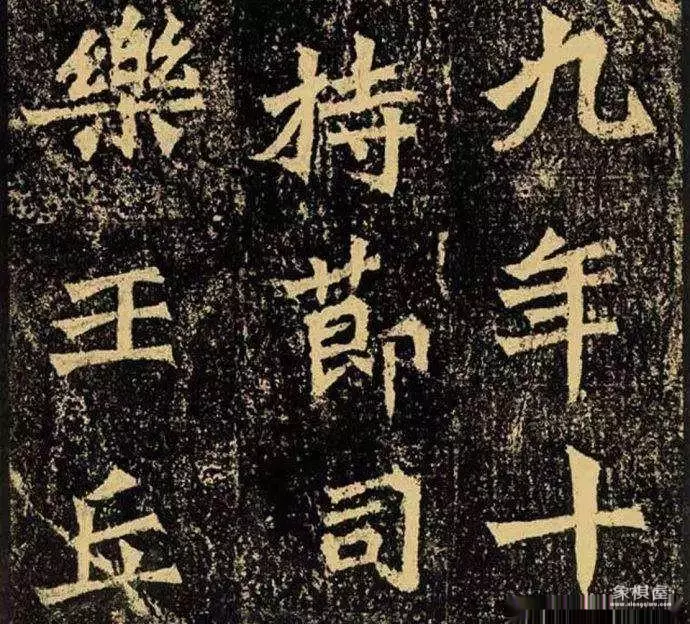 九年十
持節司
樂王丘
象棋屋
www.xiangqiwu.com